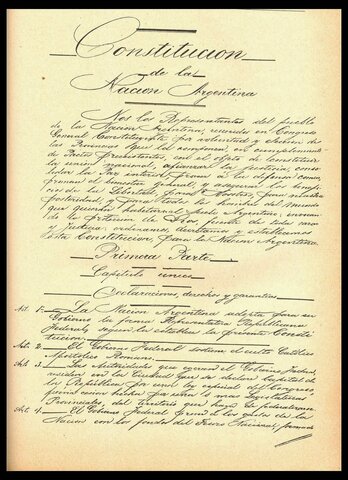 Constitucion
de la
Nacion Argentina
Nos los Representantes del pueblo
de la Nacion Argentina, reunidos en Congreso
General Constituyente por voluntad y eleccion de
las Provincias que la componen, en cumplimiento
de Pactos preexistentes, con el objeto de constituir
la union nacional, afianzar la justicia, conso-
lidar la paz interior, proveer a la defensa comun,
promover el bienestar general, y asegurar los benefi-
cios de la libertad para nosotros, para nuestra
posteridad, y para todos los hombres del mundo
que quieran habitar el suelo Argentino, invocan-
do la proteccion de Dios, fuente de toda razon
y justicia: ordenamos, decretamos y establecemos
esta Constitucion, para la Nacion Argentina.
Primera Parte
Capitulo unico
Declaraciones, derechos y garantias
Art. 1. La Nacion Argentina adopta para su
Gobierno la forma Representativa Republicana
Federal, segun la establece la presente Consti
tucion
Art. 2. El Gobierno Federal sostiene el culto Católico
Apostolico Romano.
Art. 3. Las Autoridades que ejercen el Gobierno Federal,
residen en la Ciudad que se declare Capital de
la Republica por una ley especial del Congreso,
previa cesion hecha por una ó mas Legislaturas
Provinciales, del territorio que haya de federalizarse.
Art. 4. El Gobierno Federal provee á los gastos de la
Nacion con los fondos del Tesoro Nacional, formado